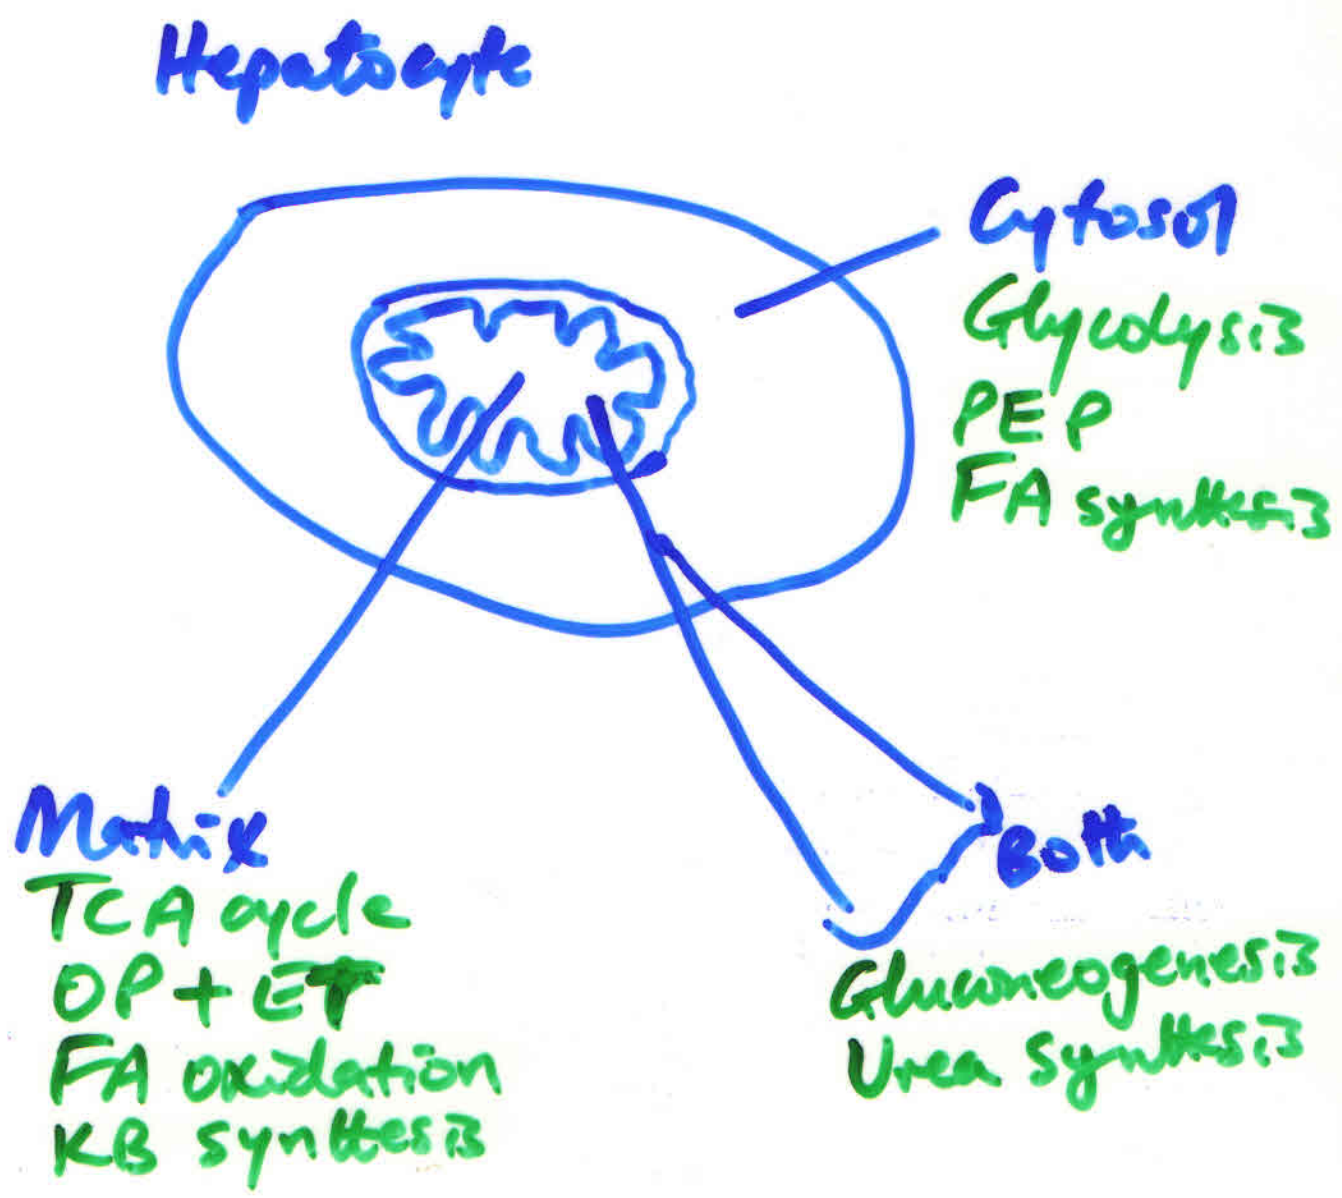 Hepatocyte
Cytosol
Glycolysis
PEP
FA synthesis
Matrix
TCA cycle
OP + ET
FA oxidation
KB synthesis
Both
Gluconeogenesis
Urea synthesis